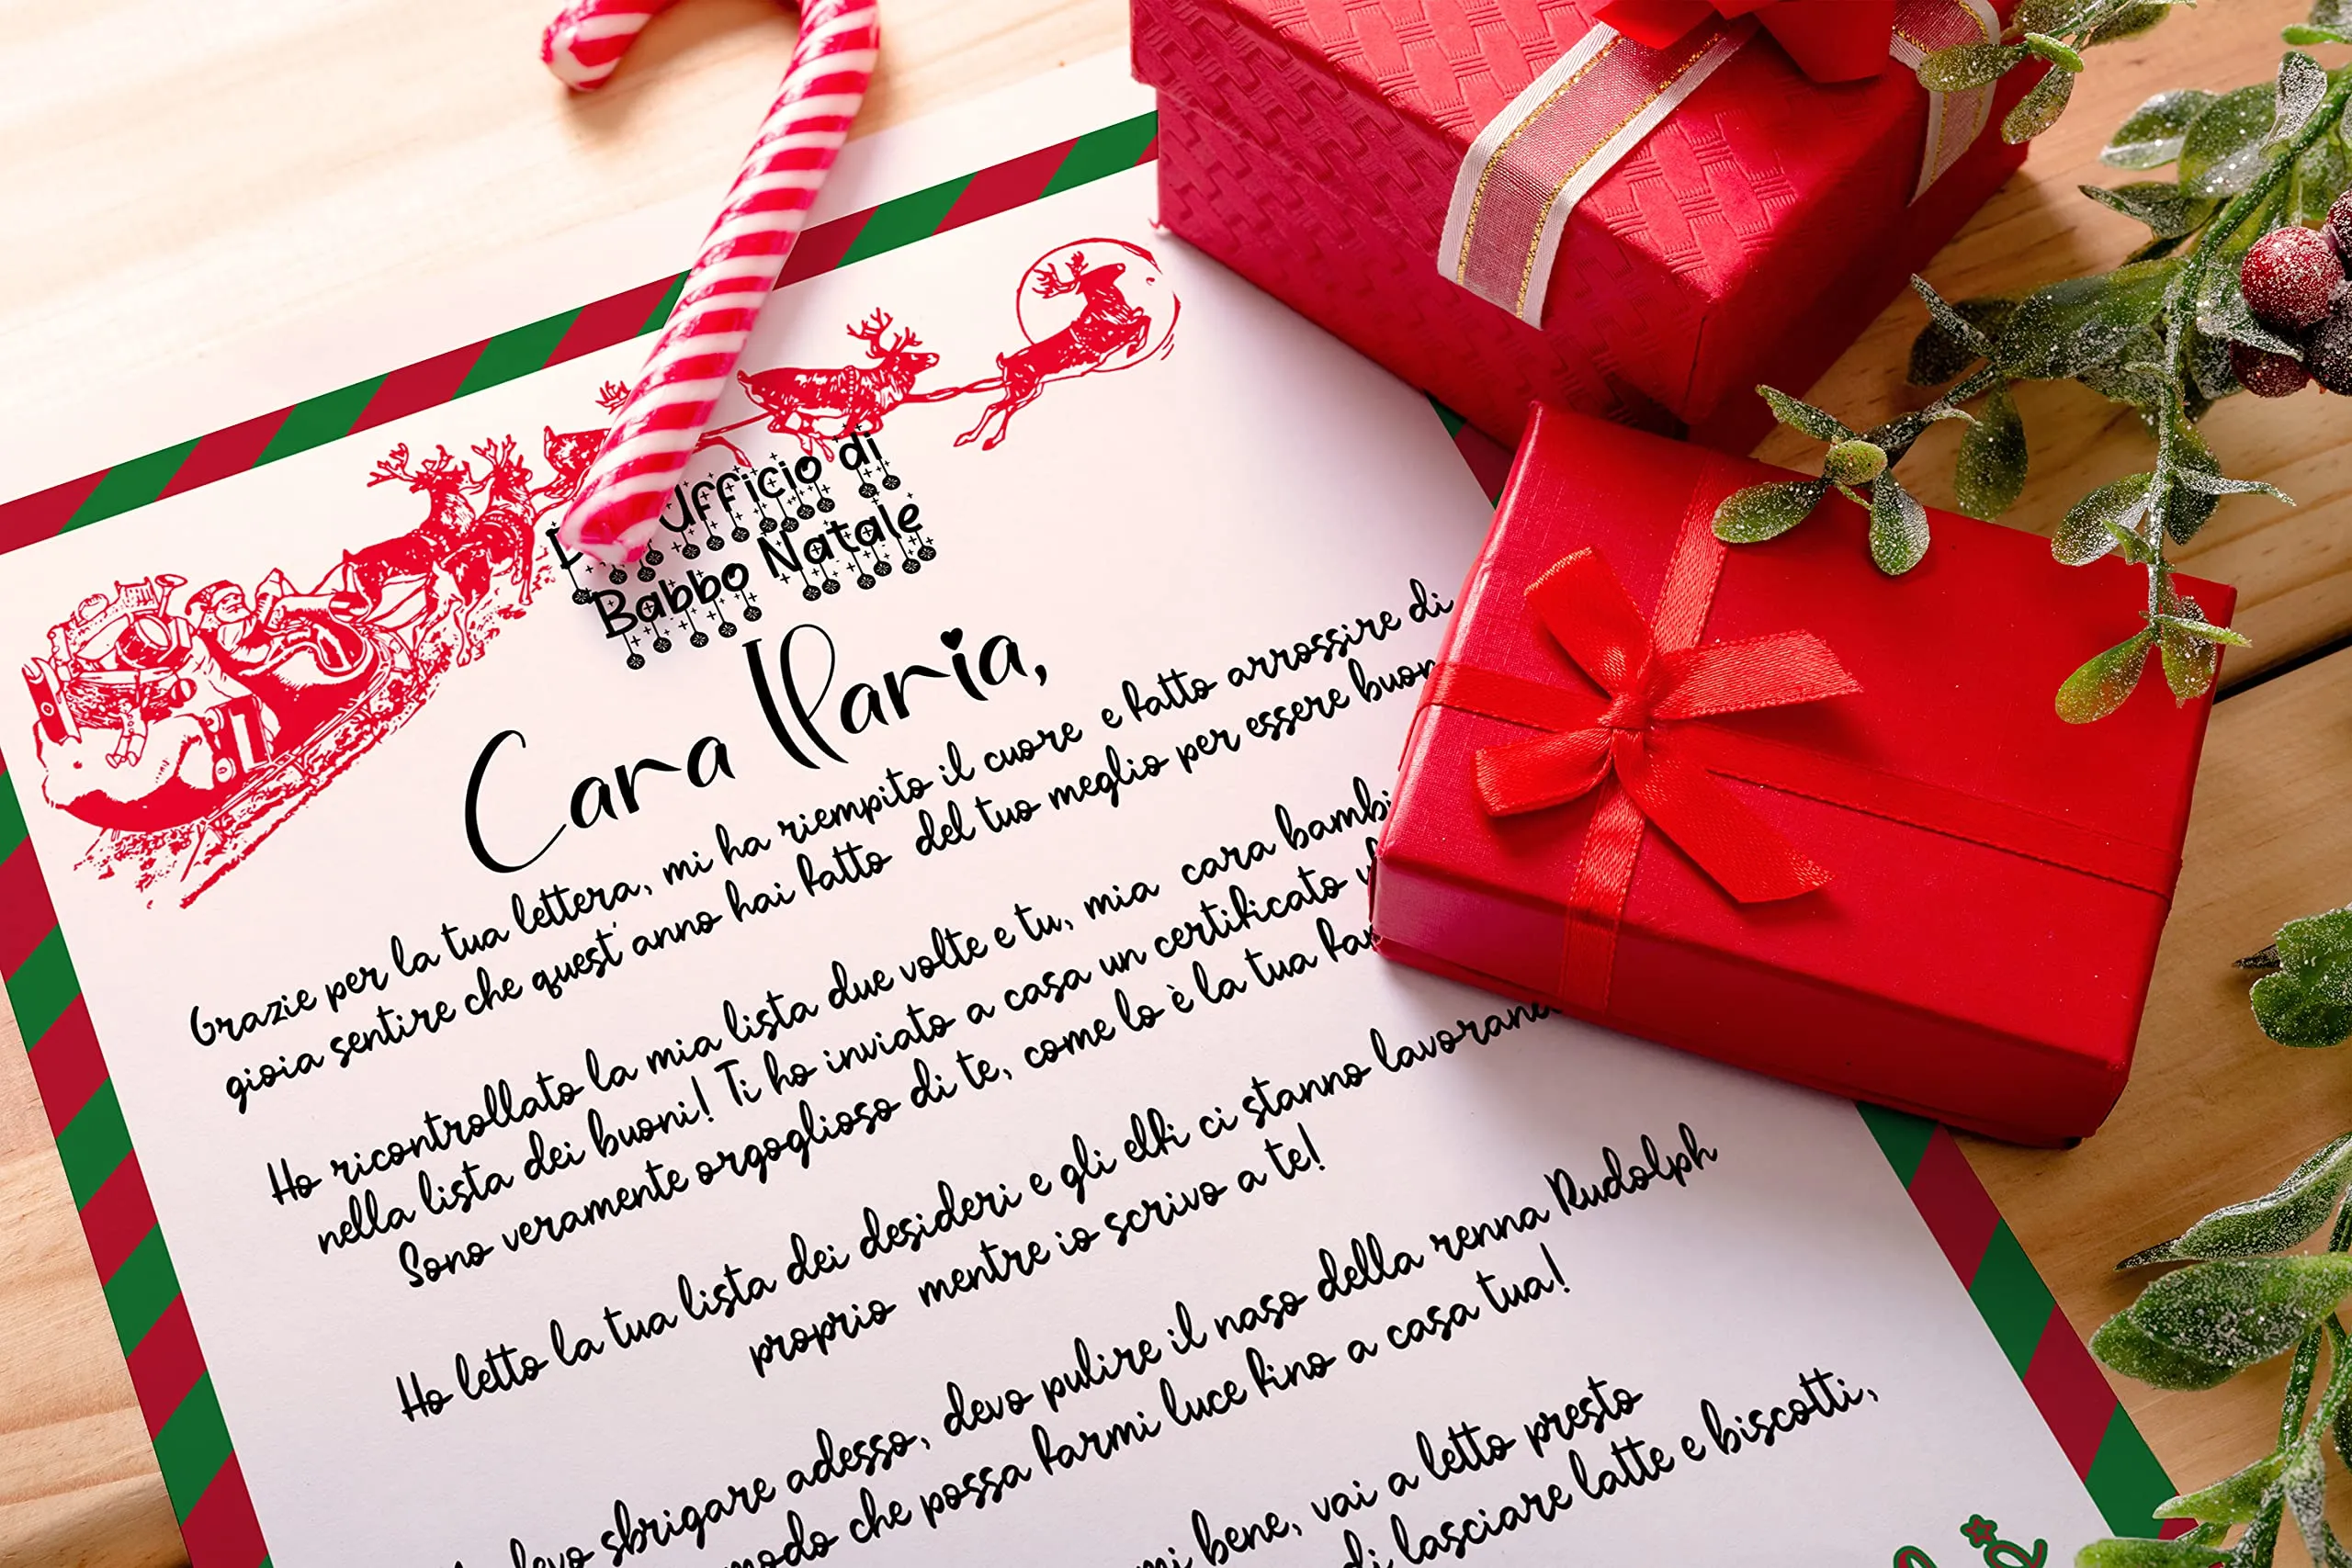 Ufficio di
Babbo Natale
Cara Ilaria,
Grazie per la tua lettera, mi ha riempito il cuore e fatto arrossire di
gioia sentire che quest'anno hai fatto del tuo meglio per essere buon
Ho ricontrollato la mia lista due volte e tu, mia cara bambi
nella lista dei buoni! Ti ho inviato a casa un certificato
Sono veramente orgoglioso di te, come lo è la tua
Ho letto la tua lista dei desideri e gli elfi ci stanno lavorand
proprio mentre io scrivo a te!
devo sbrigare adesso, devo pulire il naso della renna Rudolph
modo che possa farmi luce fino a casa tua!
mi bene, vai a letto presto
di lasciare latte e biscotti,